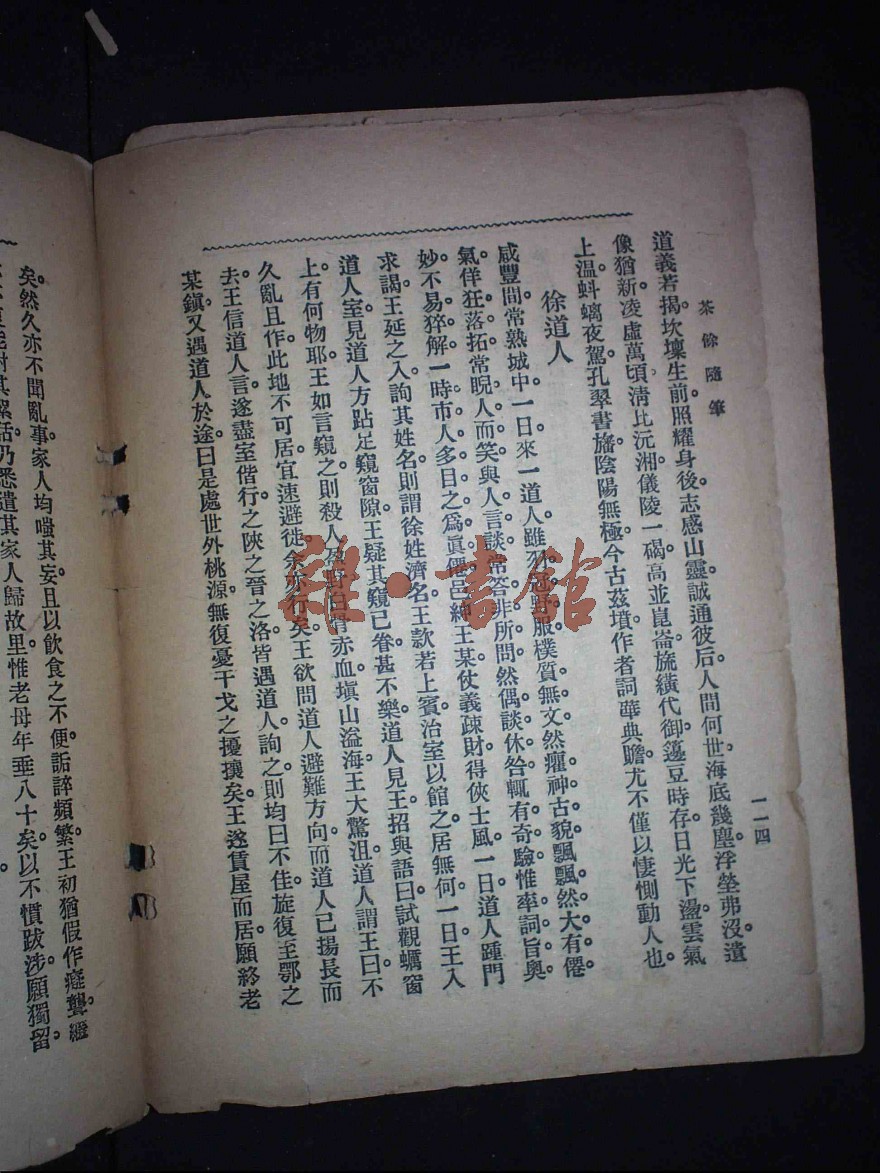 茶餘隨筆
一一四
道義若揭。坎壈生前。照耀身後。志感山靈。誠通彼后。人間何世。海底幾塵。浮塋弗沒。遺
像猶新。凌虛萬頃。淸比沅湘。儀陵一碣。高並崑崙。旒纊代御。籩豆時存。日光下盪。雲氣
上溫。蚪螭夜駕。孔翠書旛。陰陽無極。今古茲墳。作者詞華典贍。尤不僅以悽惻動人也。
徐道人
咸豐間。常熟城中。一日來一道人。雖羽冠野服。樸質無文。然癯神古貌。飄飄然大有僊
氣。佯狂落拓。常睨人而笑。與人言談。常答非所問。然偶談休咎。輒有奇驗。惟率詞旨奧
妙。不易猝解。一時市人多目之爲眞僊。邑紳王某。仗義疎財。得俠士風。一日道人踵門
求謁。王延之入。詢其姓名。則謂徐姓濟名。王款若上賓。治室以館之。居無何。一日王入
道人室。見道人方跕足窺窗隙。王疑其窺己眷。甚不樂。道人見王。招與語曰。試觀蠣窗
上有何物耶。王如言窺之。則殺人盈野。白骨赤血。塡山溢海。王大驚沮。道人謂王曰。不
久亂且作。此地不可居。宜速避徙。余亦行矣。王欲問道人避難方向。而道人已揚長而
去。王信道人言。遂盡室偕行。之陝之晉之洛。皆遇道人。詢之則均曰不佳。旋復至鄂之
某鎭。又遇道人於途。曰是處世外桃源。無復憂干戈之擾攘矣。王遂賃屋而居。願終老
矣。然久亦不聞亂事。家人均嗤其妄。且以飮食之不便。詬誶頻繁。王初猶假作癡聾。繼
其絮話。乃悉遣其家人歸故里。惟老母年垂八十矣。以不慣跋涉。願獨留
雜·書館